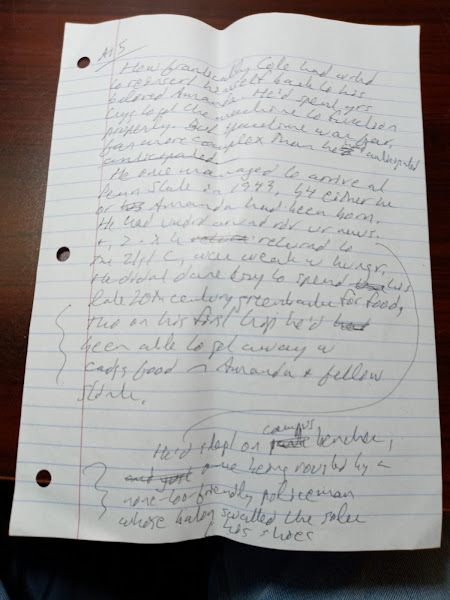 How frantically Cole had tried
to reinsert himself back to his
beloved Amanda. He'd spent yrs
trying to get the machine to function
properly. But spacetime was far,
far more complex than he had anticipated
anticipated.
He once managed to arrive at
Penn State in 1943, b4 either he
or his Amanda had been born.
He had
returned to
the 21st C, were weak w hunger.
He didn't dare try to spend his
late 20th century greenbacks for food,
tho on his first trip he'd had
been able to get away w
food Amanda & fellow
He'd slept on campus benches,
and just once being rousted by a
none-too-friendly policeman
whose baton swatted the soles
of his shoes